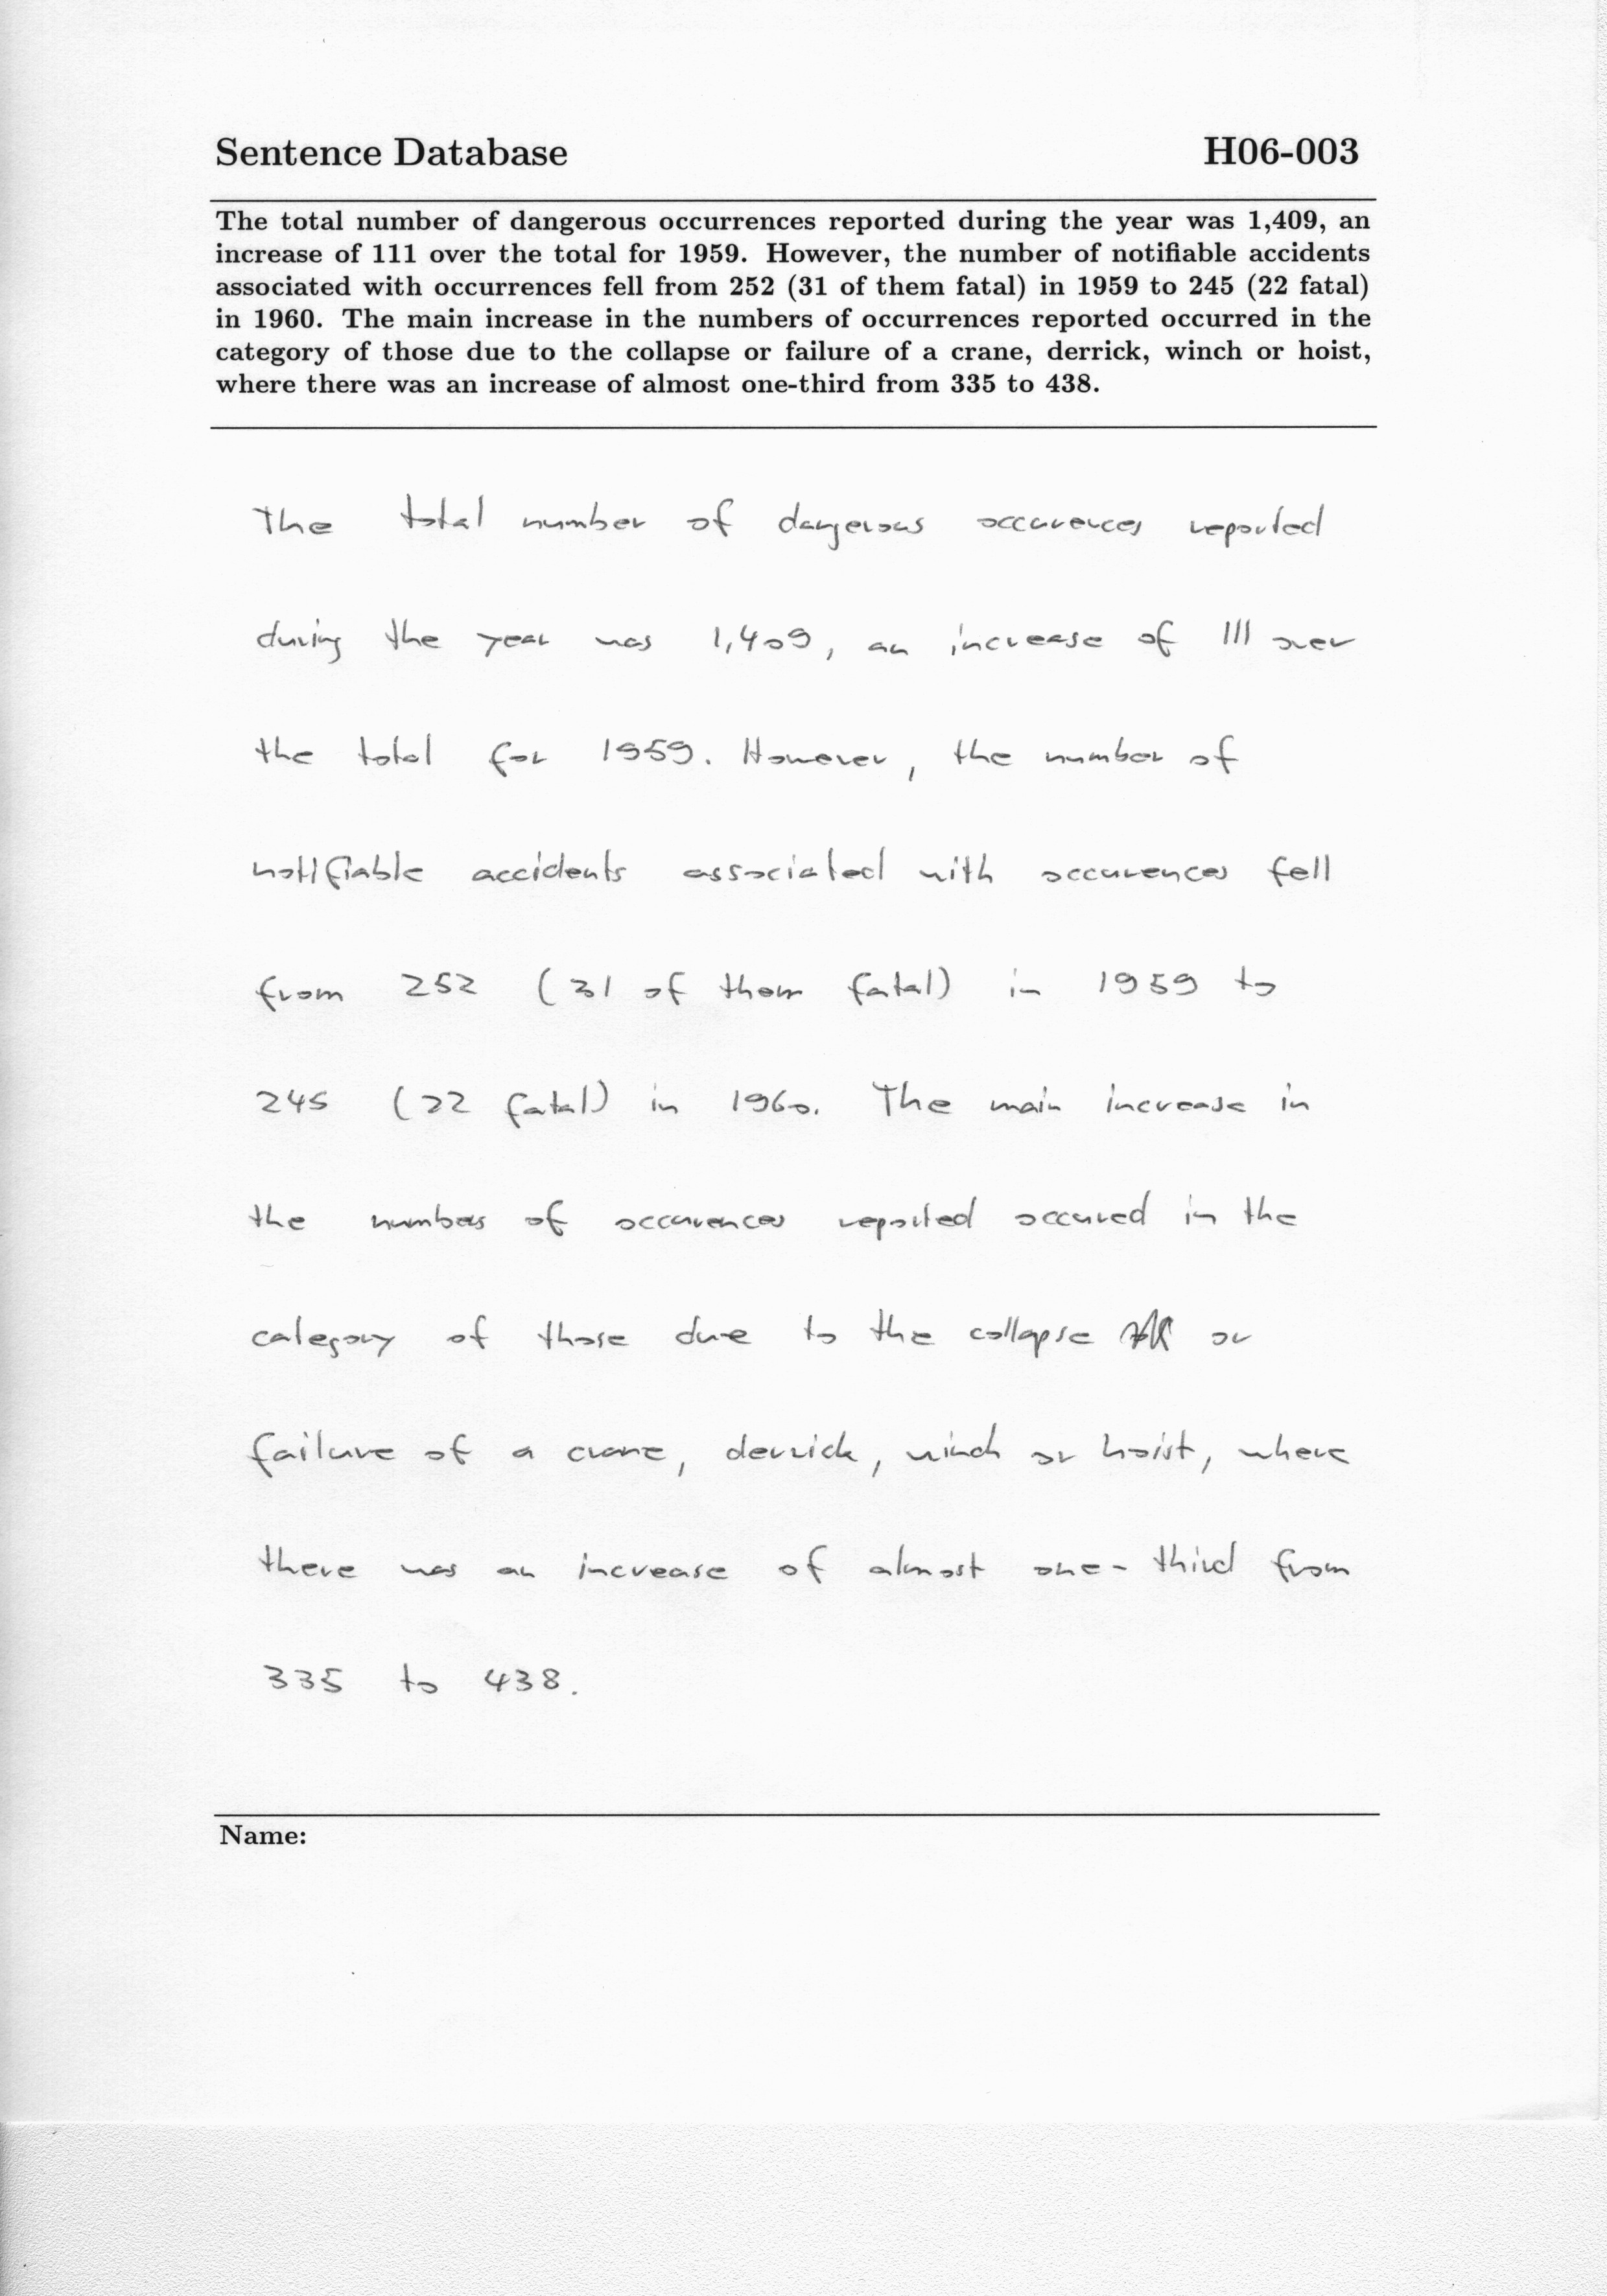 Sentence Database H06-003
The total number of dangerous occurrences reported during the year was 1,409, an
increase of 111 over the total for 1959. However, the number of notifiable accidents
associated with occurrences fell from 252 (31 of them fatal) in 1959 to 245 (22 fatal)
in 1960. The main increase in the numbers of occurrences reported occurred in the
category of those due to the collapse or failure of a crane, derrick, winch or hoist,
where there was an increase of almost one-third from 335 to 438.
The total number of dangerous occurences reported
during the year was 1,409, an increase of 111 over
the total for 1959. However, the number of
notifiable accidents associated with occurences fell
from 252 (31 of them fatal) in 1959 to
245 (22 fatal) in 1960. The main increase in
the numbers of occurences reported occured in the
category of those due to the collapse or
failure of a crane, derrick, winch or hoist, where
there was an increase of almost one-third from
335 to 438.
Name: